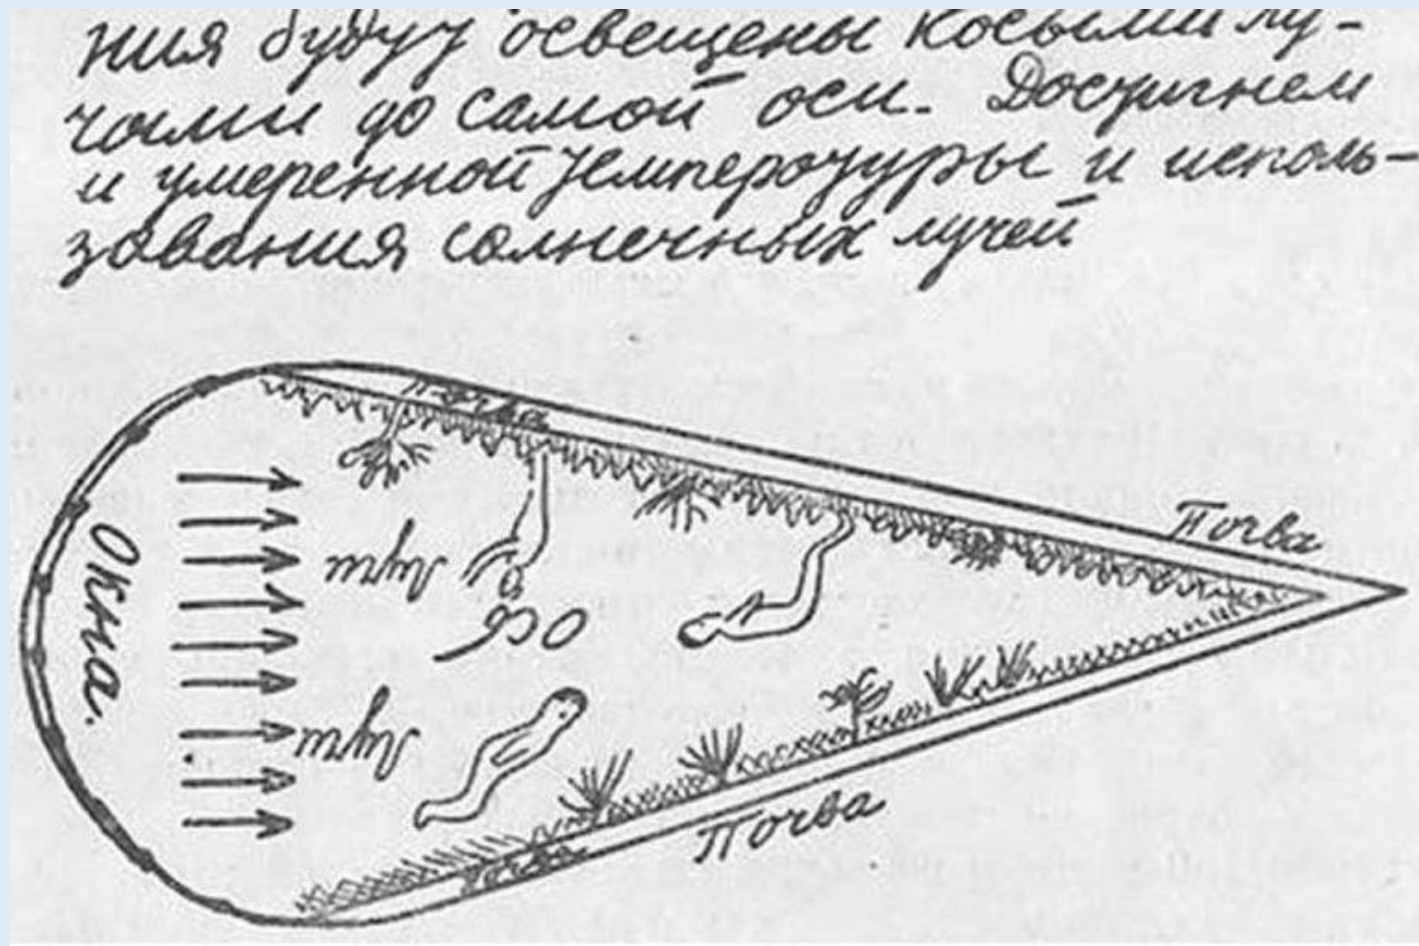 ния будут освещены косыми лу-
чами до самой оси. Достигнем
и умеренной температуры и исполь-
зования солнечных лучей
Почва
Почва
Окна.
Лучи
Ось
Лучи
Почва
Почва